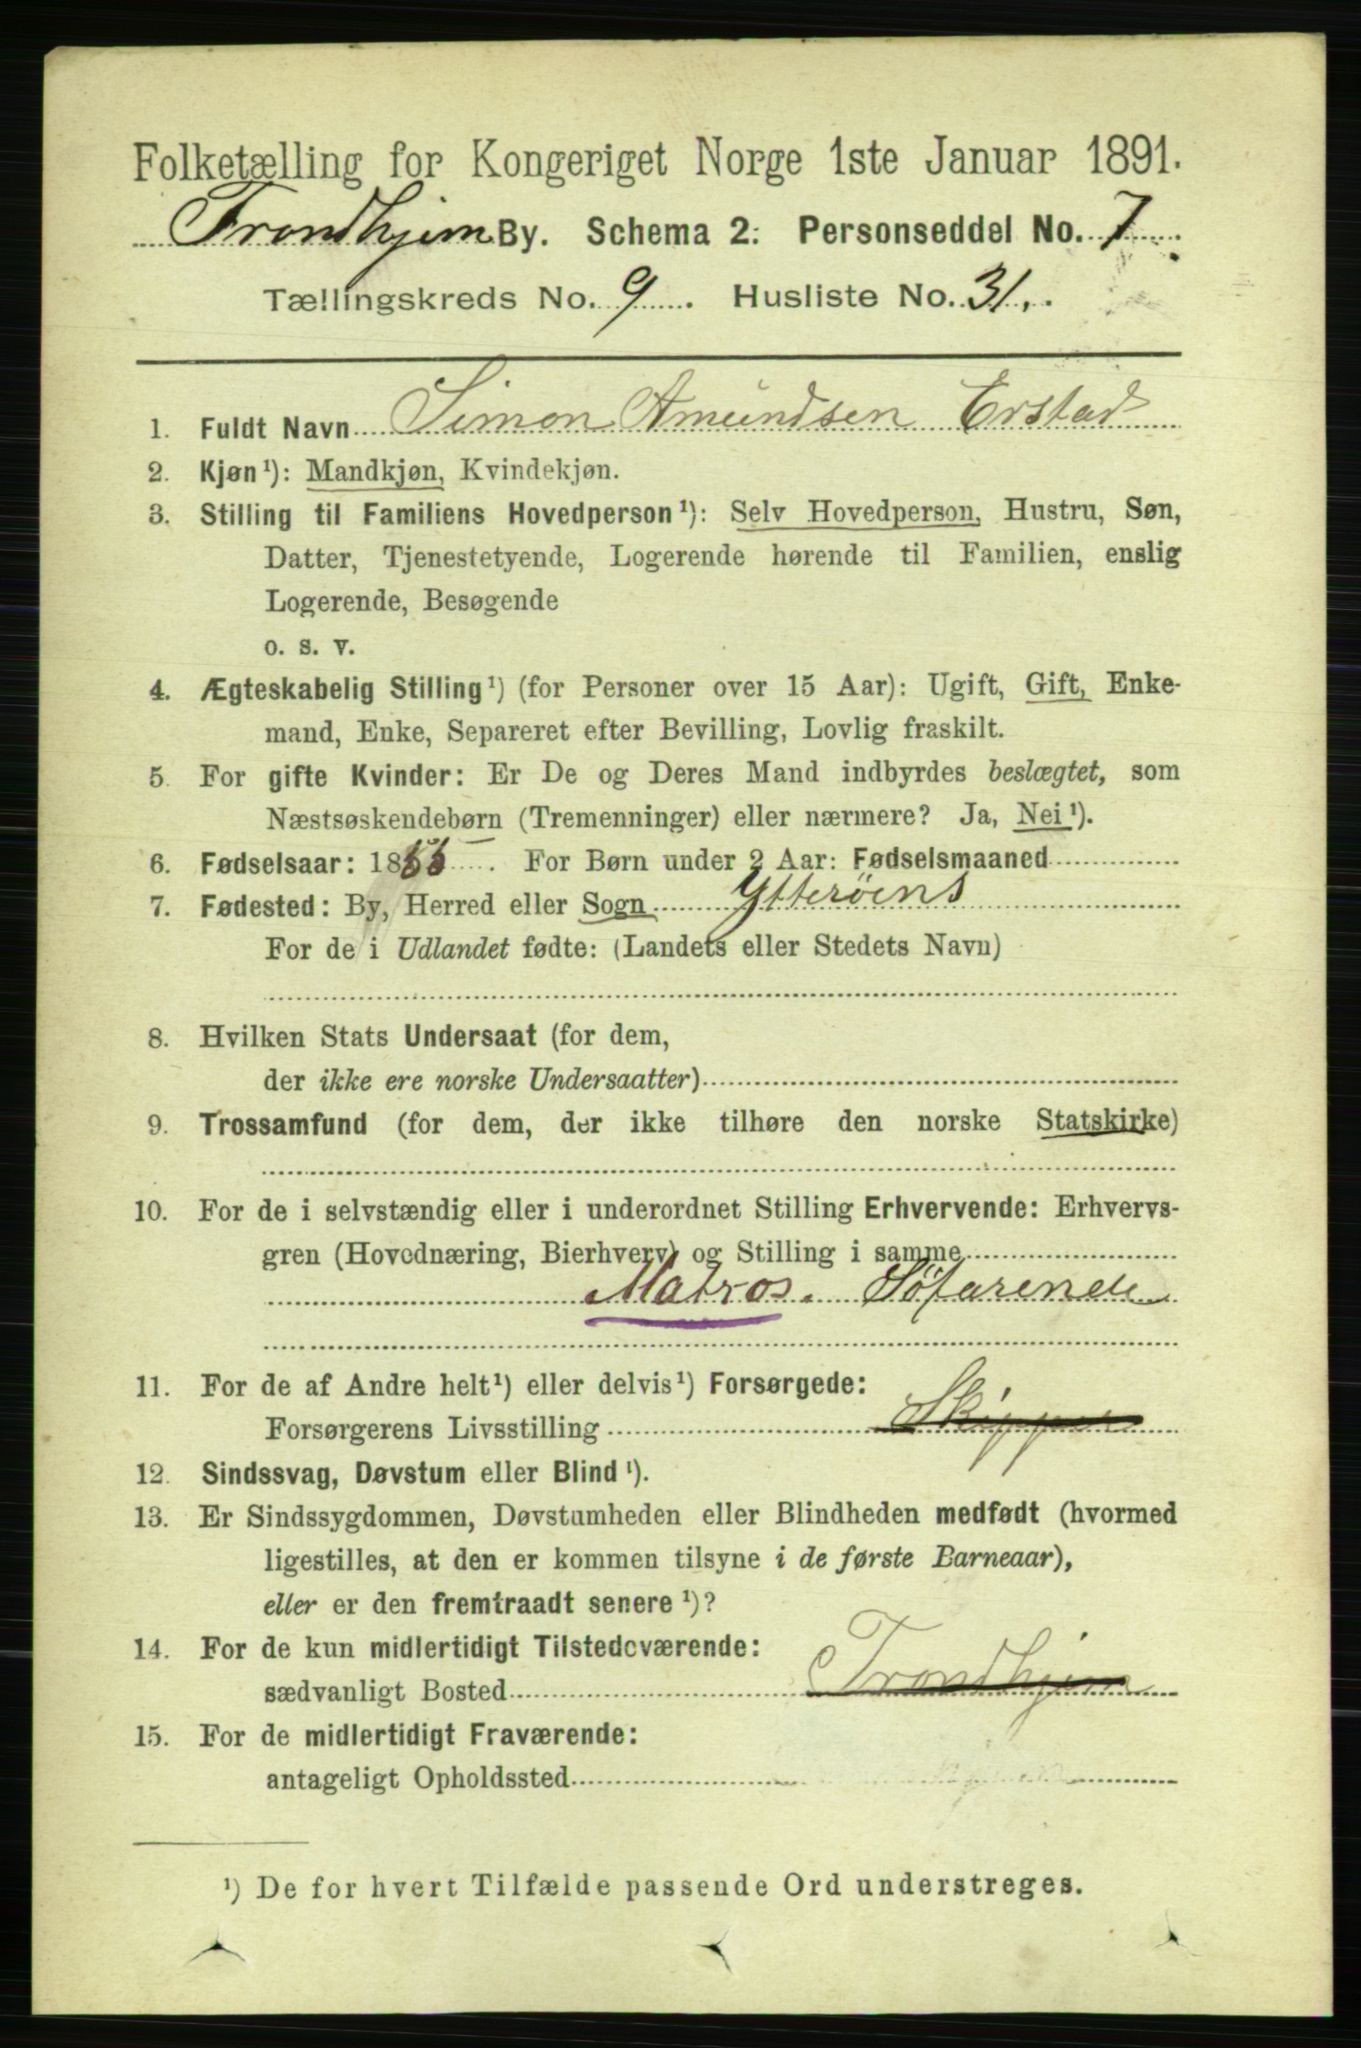 Folketælling for Kongeriget Norge 1ste Januar 1891.
Trondhjem By. Schema 2: Personseddel No. 7.
Tællingskreds No. 9. Husliste No. 31.
1. Fuldt Navn Simon Amundsen Erstad
2. Kjøn¹): Mandkjøn, Kvindekjøn.
3. Stilling til Familiens Hovedperson¹): Selv Hovedperson, Hustru, Søn,
Datter, Tjenestetyende, Logerende hørende til Familien, enslig
Logerende, Besøgende
o. s. v.
4. Ægteskabelig Stilling¹) (for Personer over 15 Aar): Ugift, Gift, Enke-
mand, Enke, Separeret efter Bevilling, Lovlig fraskilt.
5. For gifte Kvinder: Er De og Deres Mand indbyrdes beslægtet, som
Næstsøskendebørn (Tremenninger) eller nærmere? Ja, Nei¹).
6. Fødselsaar: 18 . For Børn under 2 Aar: Fødselsmaaned
7. Fødested: By, Herred eller Sogn Ytterøens
For de i Udlandet fødte: (Landets eller Stedets Navn)
8. Hvilken Stats Undersaat (for dem,
der ikke ere norske Undersaatter)
9. Trossamfund (for dem, der ikke tilhøre den norske Statskirke)
10. For de i selvstændig eller i underordnet Stilling Erhvervende: Erhvervs-
gren (Hovednæring, Bierhverv) og Stilling i samme
Matros. Søfarende
11. For de af Andre helt¹) eller delvis¹) Forsørgede:
Forsørgerens Livsstilling Skipper
12. Sindssvag, Døvstum eller Blind¹).
13. Er Sindssygdommen, Døvstumheden eller Blindheden medfødt (hvormed
ligestilles, at den er kommen tilsyne i de første Barneaar),
eller er den fremtraadt senere¹)?
14. For de kun midlertidigt Tilstedeværende:
sædvanligt Bosted Trondhjem
15. For de midlertidigt Fraværende:
antageligt Opholdssted
¹) De for hvert Tilfælde passende Ord understreges.